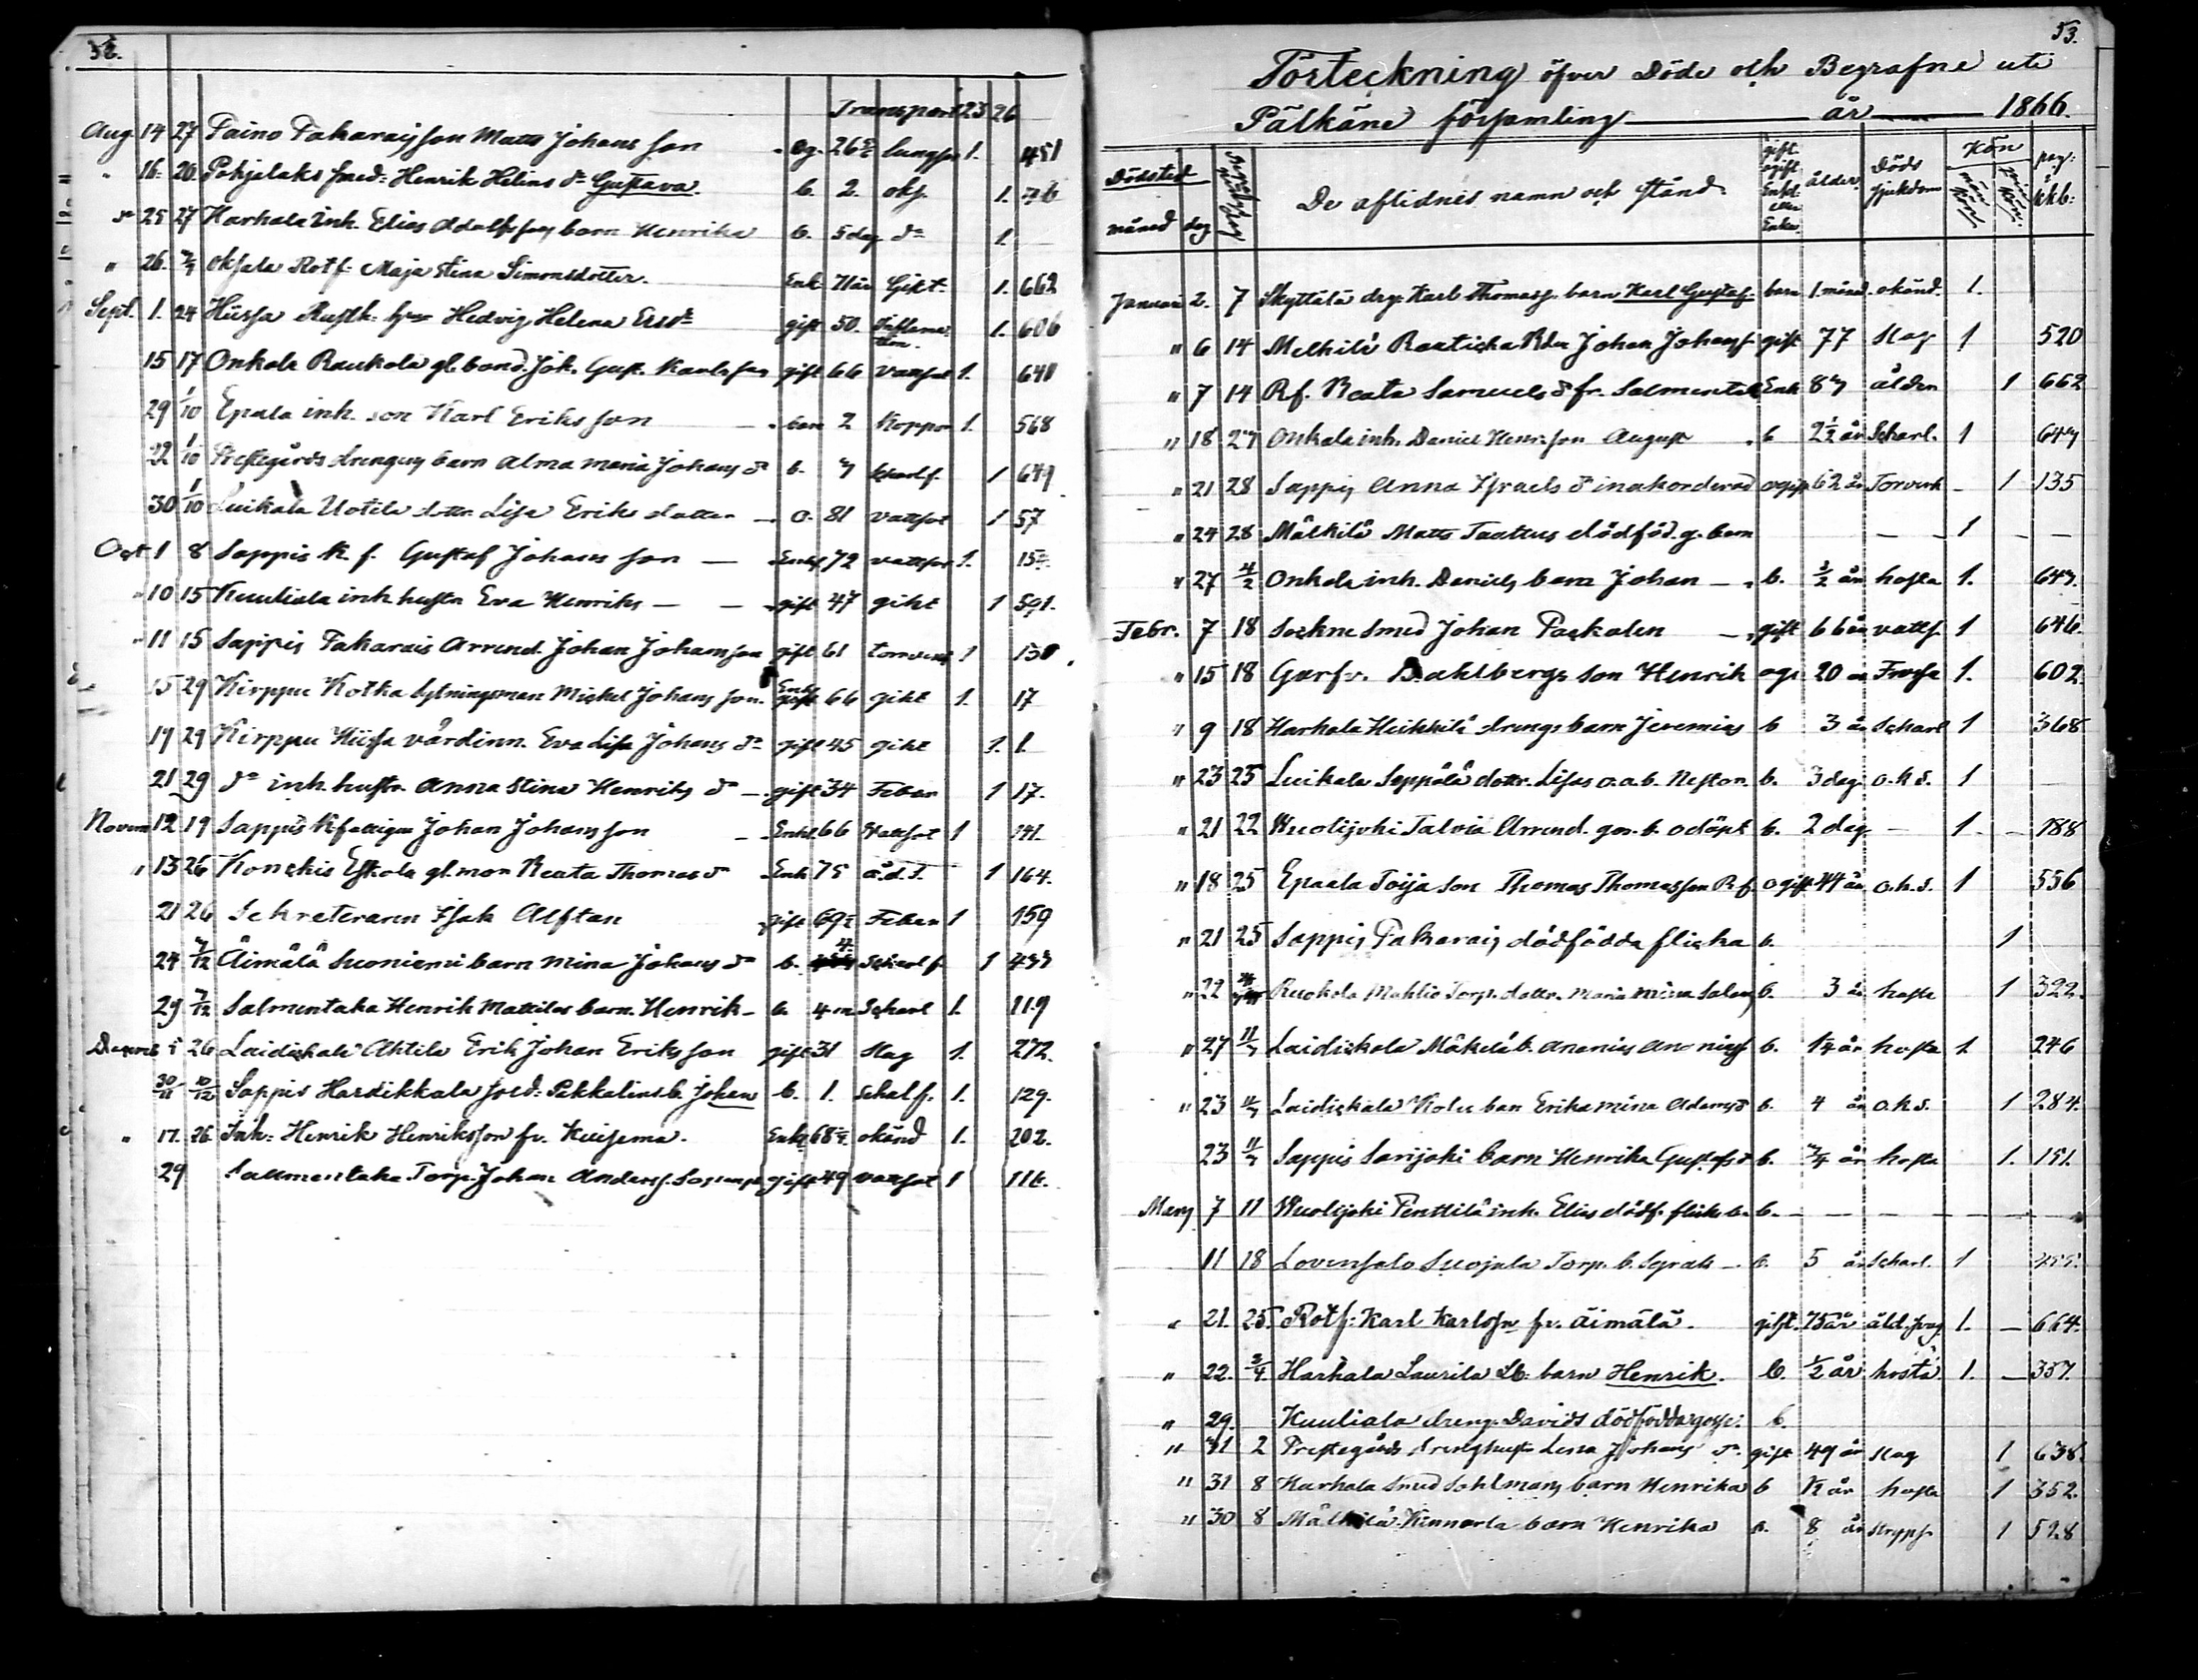 Transport 23 26
Aug. 14 27 Paino Pakarais son Matts Johans son og. 26 lungs 1. 451
" 16. 20. Pohjalaks smed: Henrik Helins dr Gustava. b. 2. okj. 1. 76
25 27 Harhala inh. Elias Adolfssons barn Henrika b. 5 dag dr 1.
" 26. Okjala Rotf: Maja Stina Simonsdotter. Enk. Gikt. 1. 662
Sept. 1. 24 Hedvig Helena Ersdr gift 50. 1. 606
15 17 Onkala Raukola gl. bond. Joh. Gust. Karlsson gift 66 vattsot 1. 641
29 1/10 Epaala inh. son Karl Eriks son barn 2 Koppor 1. 568
22 1/10 Prestegårds drengens barn Alma Maria Johans dr b. 7 Scharlf. 1 649
30 1/10 Luikala Uotila dottr. Lisa Eriks dotter — o. 81 vattsot 1 57
Oct. 1 8 Sappis R. f. Gustaf Johans son — Enkl 72 vattsot 1.
" 10 15 Kuuliala inh. hustr Eva Henriks — — gift 47 gikt 1 591.
" 11 15 Sappis Pakarais Arrend. Johan Johansson gift 61 torrverk 1 130
15 29 Kirppu Kotka Mickel Johans son. Enkl 66 gikt 1. 17
19 29 Kirppu Hiissa värdinn. Eva Lisa Johans dr gift 45 gikt 1. 1.
21 29 dr inh. hustr. Anna Stina Henriks dr — gift 34 Feber 1 17.
Novem 12 19 Sappis R fattigen Johan Johansson Enkl 66 Vattsot 1
" 13 26 Konckis Eskola gl. mor Beata Thomas dr Enk 75 å.d.s. 1 164.
21 26 Sekreteraren Isak Alftan gift 69 Feber 1 159
24 7/12 Äimälä Suoniemi barn Mina Johans dr b. 4. Scharlf 1 433
29 7/12 Salmentaka Henrik Mattilas barn. Henrik — b. 4 m Scharl 1. 119
Decemb 26 Laidickala Ahtila Erik Johan Eriksson gift 31 slag 1. 272.
30/11 10/12 Sappis Hardikkala sold: Pekkalins b. Johan b. 1. schalf. 1. 129.
" 17. 26. Inh: Henrik Henriksson fr. Kuisema. Enkl 68 okänd 1. 202.
29 Salmentaka Torp. Johan Anders. gift 49 vattsot 1 116.
53.
Förteckning öfver Döde och Begrafne uti
Pälkäne församling — år — 1866.
Dödstid månad dag De aflidnes namn och stånd. gift ogift Enkl. eller Enka. ålder Döds sjukdom Kön pag: kkb:
Januari 2. 7 Skyttälä drg. Karl Thomass. barn Karl Gustaf barn 1. månad. okänd. 1.
" 6 14 Mälkilä Johan Johanss gift 77 slag 1 520
" 7 14 Rf. Beata Samuels dr fr. Salmentaka Enk 87 ålder 1 662
" 18 27 Onkala inh. Daniel Henrikson August b 2½ år Scharl. 1 647
" 21 28 Sappis Anna Israels dr ogift 62 år Torrverk — 1 135
" 24 28 Mälkilä Matts Tacttus dödföd. g. barn — — 1 — —
" 27 4/2 Onkala inh. Daniels barn Johan — b. ½ år hosta 1. 647.
Febr. 7 18 Sockne smed Johan Packalen — gift 66 år vatts. 1 646.
" 15 18 Garfv. Dahlbergs son Henrik ogi 20 år Frossa 1. 602
" 9 18 Harhala Heikkilä drengs barn Jeremias b 3 år Scharl 1 368
" 23 25 Luikala Seppälä dottr. Lisas o.ä.b. Neston. b. 3 dag. o.k.s. 1 —
" 21 22 Wuolijoki Talvia Arrend. gos. b. odöpt b. 2 dag — 1. — 188
" 18 25 Epaala Toija son Thomas Thomasson Rf. ogift 44 år o.k.s. 1 556
" 21 25 Sappis Pakarais dödfödda flicka b. 1
" 22 Ruokola Mahlio Torp. dottr. Maria Mina b. 3 år hosta 1 322.
" 27 11/3 Laidickala Mäkelä b. Ananias Ananiass b. år hosta 1. 246
" 23 11/3 Laidickala barn Erika Mina Adams dr b. 4 år o.k.s. 1 284.
23 11/3 Sappis Sarijoki barn Henrika Gustafs dr b. 3/4 år hosta 1. 151.
Mars 7 11 Wuolijoki Penttilä inh. Elias dödf. flicka b. b. — — — — — —
11 18 Lovensalo Suojala Torp. b. — b. 5 år Scharl. 1
" 21. 25. Rotf: Karl Karlsson fr. Äimälä. gift. 75 år åld. svag. 1. — 664.
" 22. 2/4. Harhala Laurila Lb: barn Henrik. b. ½ år hosta 1. — 357.
" 29. Kuuliala dreng. Davids dödfödda gosse. b.
" 31 2 Prestegårds drenghustr Lena Johans dr. gift 49 år slag 1 638.
" 31 8 Harhala smed Sohlmans barn Henrika b ½ år hosta 1 352.
" 30 8 Mälkilä Kinnarla barn Henrika b. 8 år strypsj. 1 528